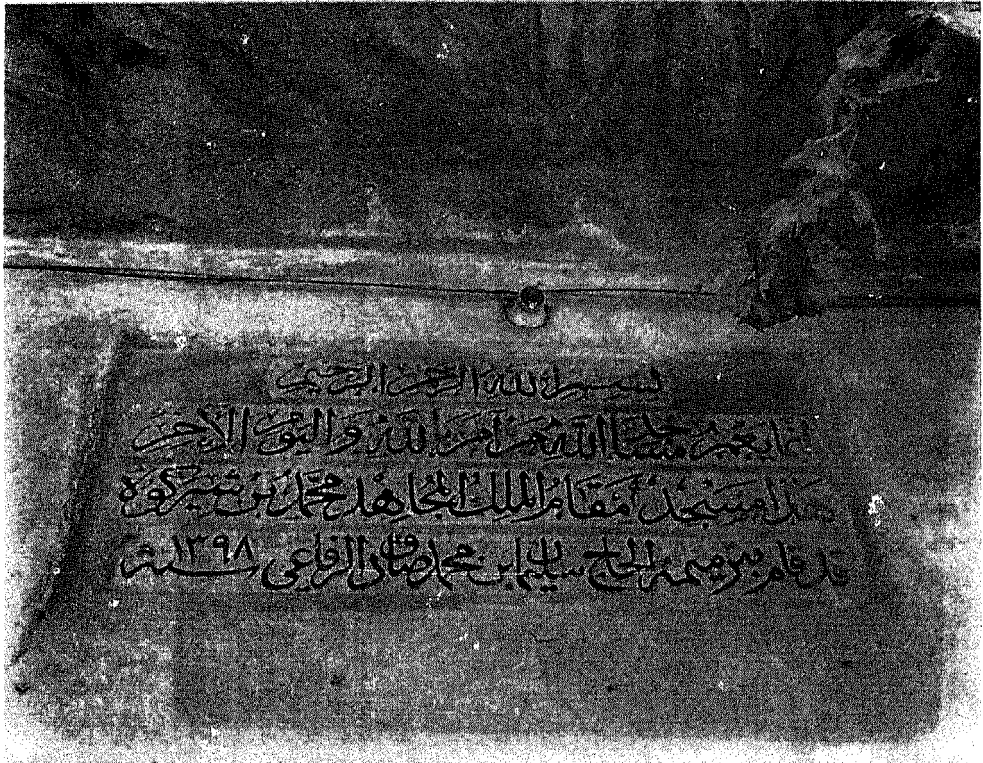 بسم الله الرحمن الرحيم
إنما يعمر مساجد الله من آمن بالله واليوم الآخر
هذا مسجد ومقام الملك المجاهد محمد بن شيركوه
قد قام بترميمه الحاج سليم ابن محمد صادق الرفاعي سنة ١٣٩٨